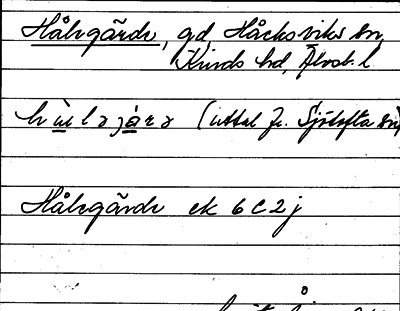 Hålegärde, gd Håcksviks sn,
Kinds hd, Älvsb. l
(uttal fr. Sjötofta sn)
Hålegärde ek 6 C 2 j